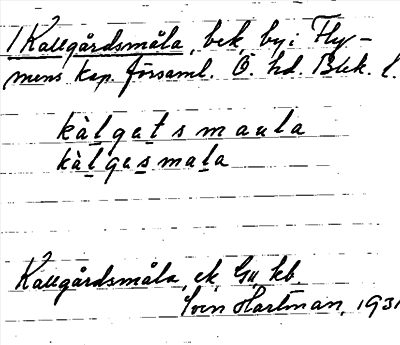 1 Kallgårdsmåla, bek. by i Fly-
mens kap. församl. Ö. hd. Blek. l.
kàlgatsmaula
kàlgesmala
Kallgårdsmåla, ek, GU kb.
Sven Hartman, 1931